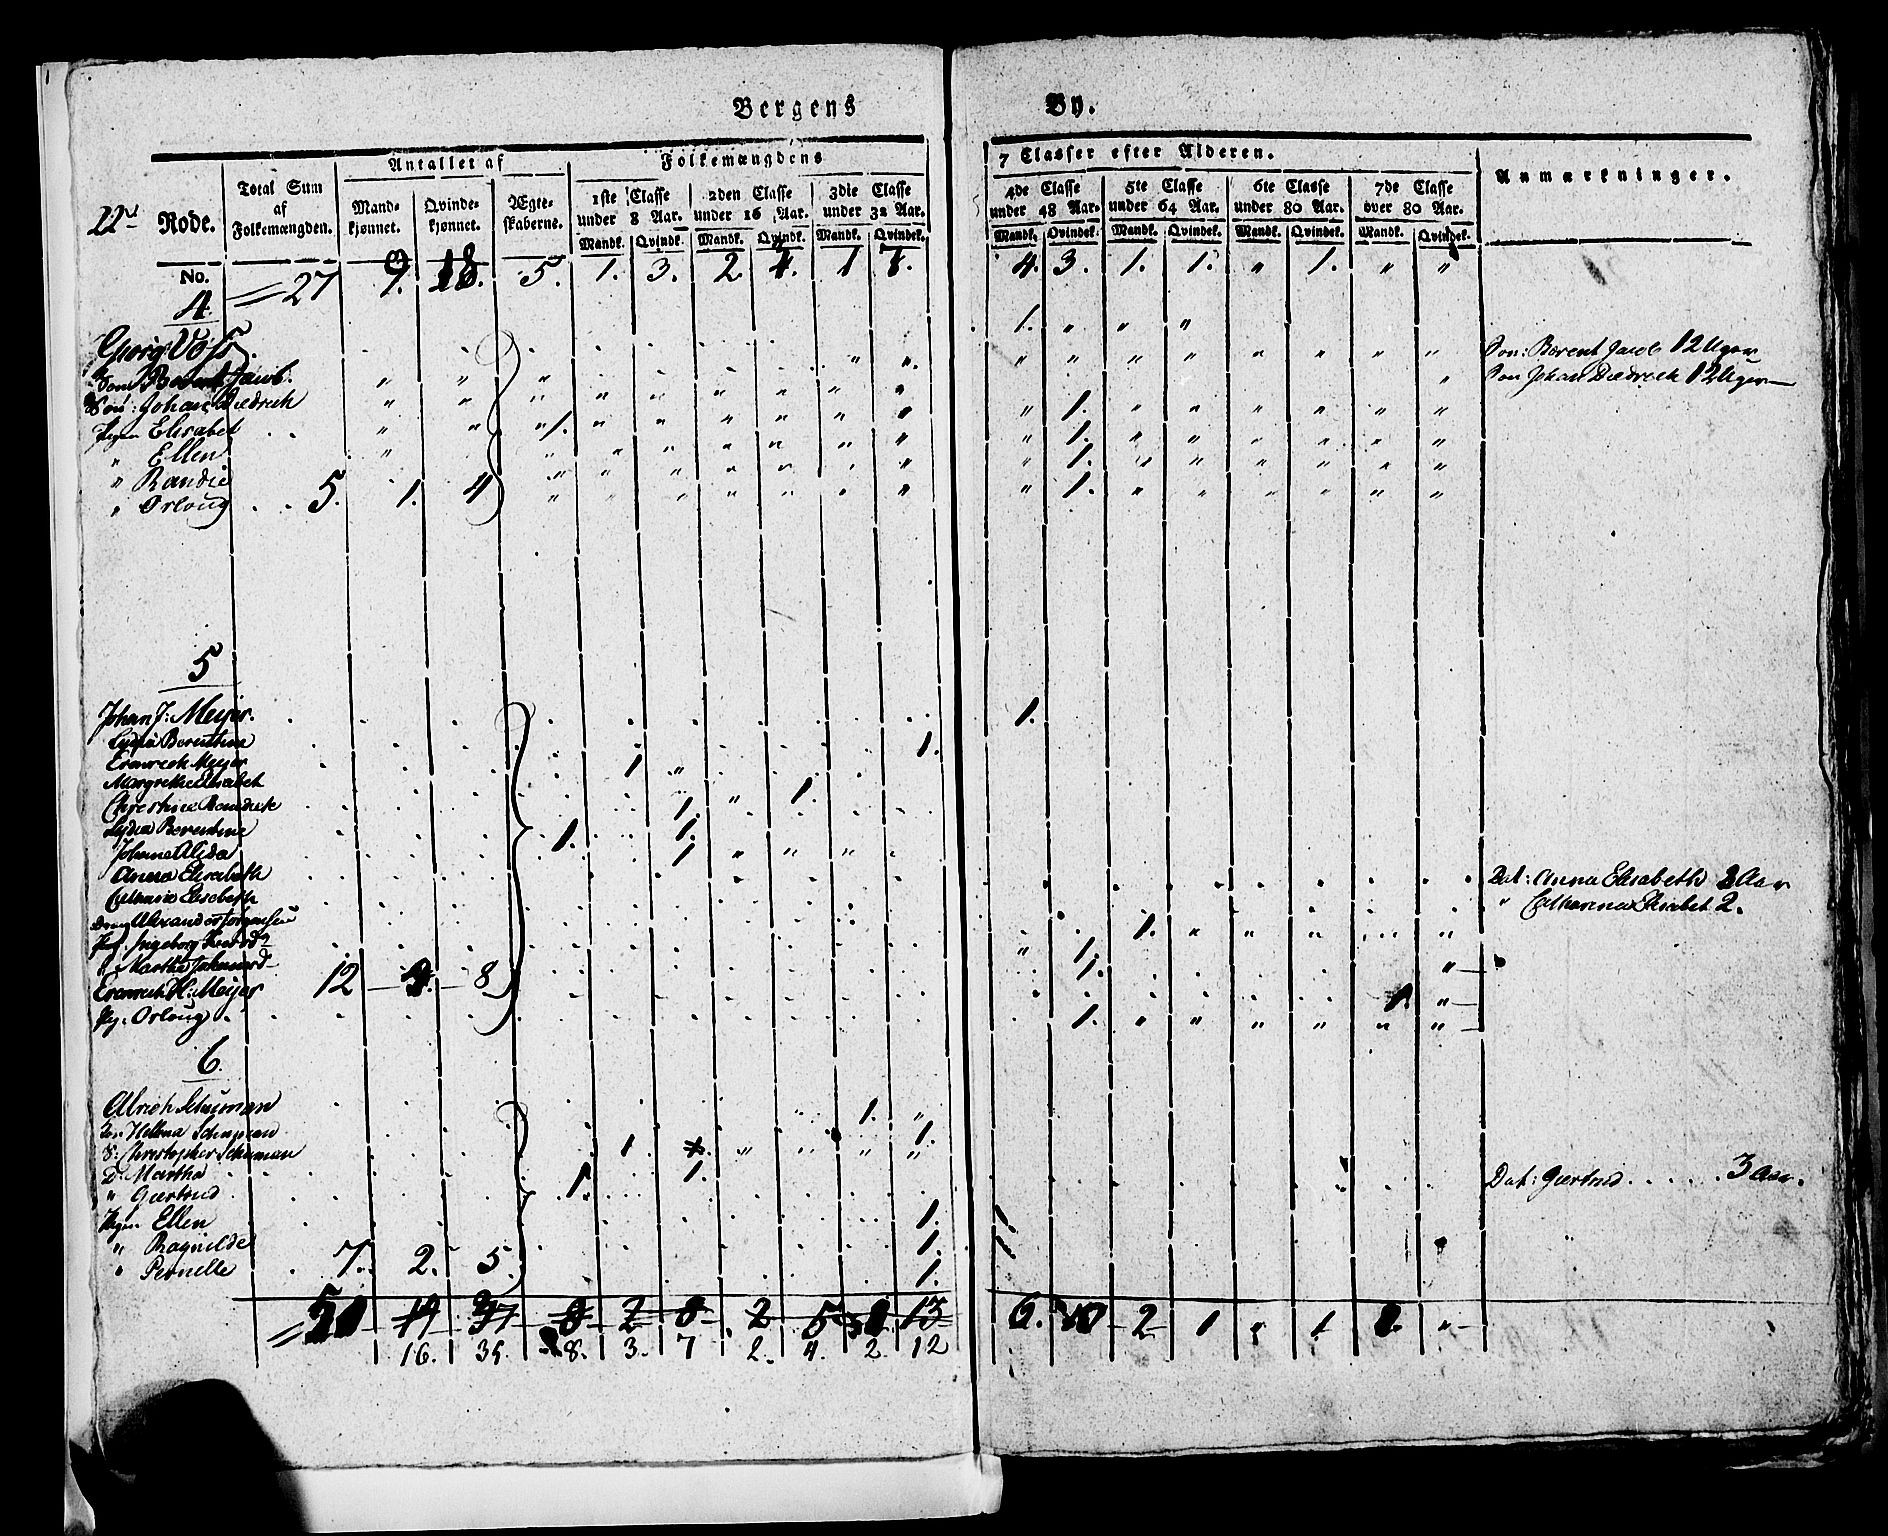 Bergens By.
22de Rode.
Total Sum af Folkemængden.
Antallet af
Mandkjønnet. Qvindekjønnet. Ægteskaberne.
Folkemængdens 7 Classer efter Alderen.
1ste Classe under 8 Aar. 2den Classe under 16 Aar. 3die Classe under 32 Aar. 4de Classe under 48 Aar. 5te Classe under 64 Aar. 6te Classe under 80 Aar. 7de Classe over 80 Aar.
Anmærkninger.
Mandk. Qvindk. Mandk. Qvindk. Mandk. Qvindek. Mandk. Qvindek. Mandk. Qvindek. Mandk. Qvindek. Mandk. Qvindek.
No. 27 9. 18. 5. 1. 3. 2 4. 1 7. 4. 3. 1. 1. " 1. " "
4.
Georg Voss. 1. " " "
Søn: Berent Jacob. Søn: Berent Jacob 12 Uger
Søn: Johan Diedrich Søn Johan Diedrich 12 Uger
Pigen Elisabet 1. 1.
" Ellen 1.
" Randie 1.
" Orloug 5. 1. 4 1.
5
Johan J: Meyer. 1.
Lydia Berentina 1.
Meyer 1 "
Margrethe Elisabet 1.
Christine 1. "
Lydia Berentine 1. 1.
Johana Alida 1 " " "
Anna Elisabeth Dat: Anna Elisabeth 3 Aar
Elisabeth " Catharina Elisabet 2.
Alexander Jørgensen 1. " " " "
Pig. Ingeborg " 1.
" Martha 12 8 1. "
H: Meyer 1. "
Pig. Orloug 1. " " " " "
6.
Ulrich Schuman 1. "
Kon. Hellena Schuman 1.
S: Christopher Schuman 1 " " " "
D. Martha 1.
" Giertrud 1. Dat: Giertrud 3 Aar.
Pigen Ellen 1.
" Ragnilde 1.
" Pernelle 7. 2. 5. 1.
51 19 37 8 2 8 2 5 13 6. 10 2 1 " 1. "
16. 35 8. 3. 7 2. 4. 2. 12